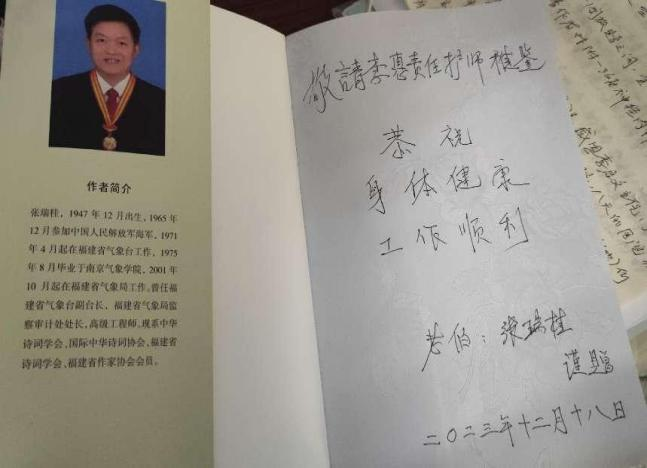 作者简介
张瑞桂，1947年12月出生，1965年
12月参加中国人民解放军海军，1971
年4月起在福建省气象台工作，1975
年8月毕业于南京气象学院，2001年
10月起在福建省气象局工作。曾任福
建省气象台副台长，福建省气象局监
察审计处处长，高级工程师。现系中华
诗词学会、国际中华诗词协会、福建省
诗词学会、福建省作家协会会员。
敬請李惠责任护师雅鉴
恭祝
身体健康
工作顺利
老伯：张瑞桂
谨赠
二〇二三年十二月十八日